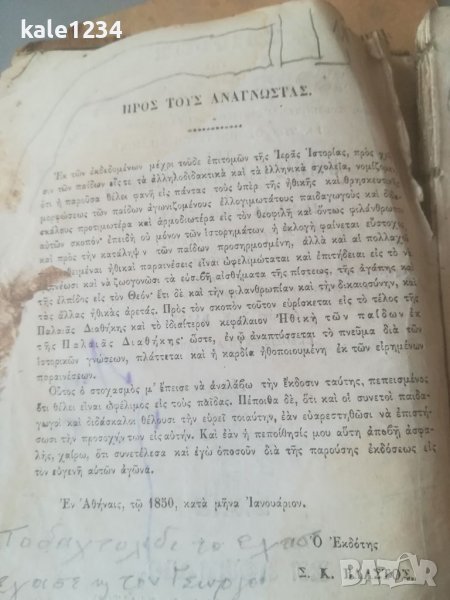 kale1234
ΠΡΟΣ ΤΟΥΣ ΑΝΑΓΝΩΣΤΑΣ.
Ἐκ τῶν ἐκδεδομένων μέχρι τοῦδε ἐπιτομῶν τῆς Ἱερᾶς Ἱστορίας, πρὸς
σιν τῶν παίδων εἴς τε τὰ ἀλληλοδιδακτικὰ καὶ τὰ ἑλληνικὰ σχολεῖα, νομίζομεν
ὅτι ἡ παροῦσα θέλει φανῆ εἰς πάντας τοὺς ὑπὲρ τῆς ἠθικῆς καὶ θρησκευτικῆς
μορφώσεως τῶν παίδων ἀγωνιζομένους ἐλλογιμωτάτους παιδαγωγοὺς καὶ
σκάλους προτιμωτέρα καὶ ἁρμοδιωτέρα εἰς τὸν θεοφιλῆ καὶ ὄντως φιλάνθρωπον
αὐτῶν σκοπὸν· ἐπειδὴ οὐ μόνον τῶν ἱστορημάτων ἡ ἐκλογὴ φαίνεται εὔστοχος
καὶ πρὸς τὴν κατάληψιν τῶν παίδων προσηρμοσμένη, ἀλλὰ καὶ αἱ πολλαχοῦ
ἠθικαὶ παραινέσεις εἶναι ὠφελιμώταται καὶ ἐπιτήδειαι εἰς τὸ νὰ
καὶ νὰ ζωογονῶσι τὰ εὐσεβῆ αἰσθήματα τῆς πίστεως, τῆς ἀγάπης καὶ
τῆς ἐλπίδος εἰς τὸν Θεόν· ἔτι δὲ καὶ τὴν φιλανθρωπίαν καὶ τὴν δικαιοσύνην, καὶ
τὰς ἄλλας ἠθικὰς ἀρετάς. Πρὸς τὸν σκοπὸν τοῦτον εὑρίσκεται εἰς τὸ τέλος τῆς
Παλαιᾶς Διαθήκης καὶ τὸ ἰδιαίτερον κεφάλαιον Ἠθικὴ τῶν παίδων ἐκ
τῆς Παλαιᾶς Διαθήκης· ὥστε, ἐν ᾧ ἀναπτύσσεται τὸ πνεῦμα διὰ τῶν
ἱστορικῶν γνώσεων, πλάττεται καὶ ἡ καρδία ἠθοποιουμένη ἐκ τῶν εἰρημένων
παραινέσεων.
Οὗτος ὁ στοχασμός μ' ἔπεισε νὰ ἀναλάβω τὴν ἔκδοσιν ταύτης, πεπεισμένος
ὅτι θέλει εἶναι ὠφέλιμος εἰς τοὺς παῖδας. Πέποιθα δὲ, ὅτι καὶ οἱ συνετοὶ παιδα-
γωγοὶ καὶ διδάσκαλοι θέλουσι τὴν εὑρεῖ τοιαύτην, ἐὰν εὐαρεστηθῶσι νὰ ἐπιστή-
σωσι τὴν προσοχήν των εἰς αὐτήν. Καὶ ἐὰν ἡ πεποίθησίς μου αὕτη ἀποβῇ ἀσφα-
λὴς, χαίρω, ὅτι συνετέλεσα καὶ ἐγὼ ὁπωσοῦν διὰ τῆς παρούσης ἐκδόσεως εἰς
τὸν εὐγενῆ αὐτῶν ἀγῶνα.
Ἐν Ἀθήναις, τῷ 1850, κατὰ μῆνα Ἰανουάριον.
Ὁ Ἐκδότης
Σ. Κ. ΒΛΑΣΤΟΣ.
BAZAR